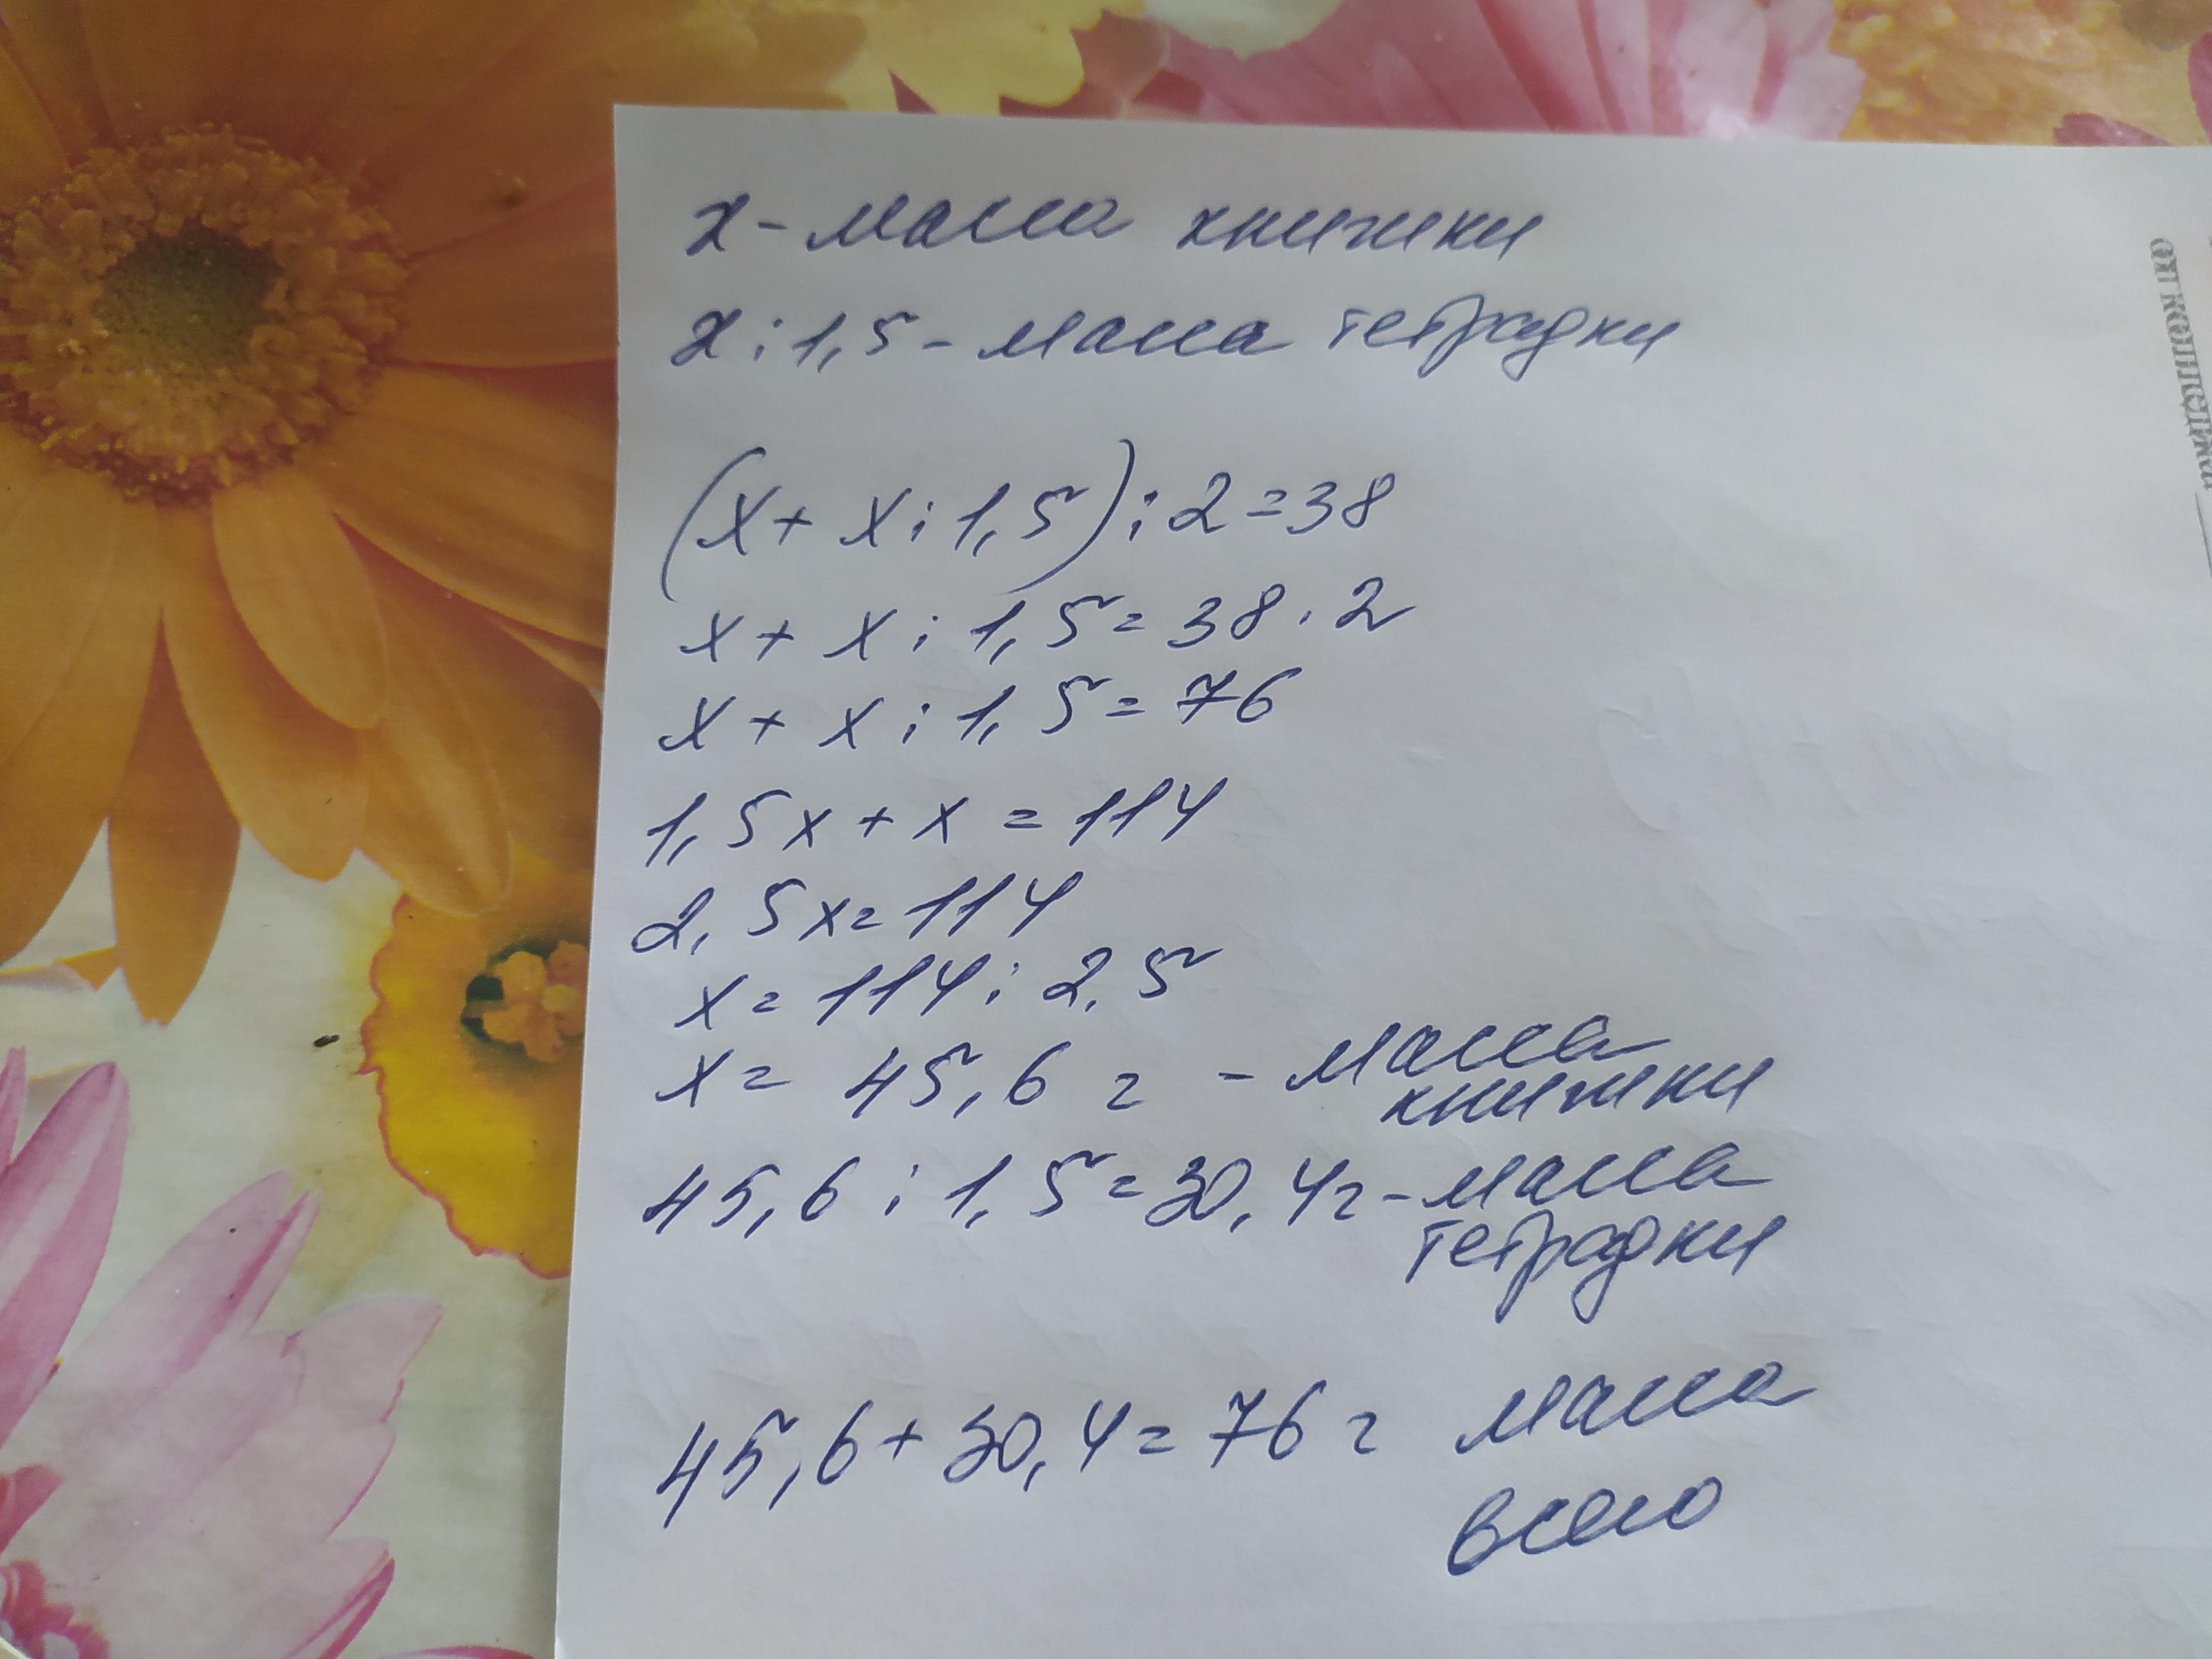 x - масса книжки
x : 1,5 - масса тетрадки
(x + x : 1,5) : 2 = 38
x + x : 1,5 = 38 · 2
x + x : 1,5 = 76
1,5x + x = 114
2,5x = 114
x = 114 : 2,5
x = 45,6 г - масса
книжки
45,6 : 1,5 = 30,4г - масса
тетрадки
45,6 + 30,4 = 76 г масса
всего